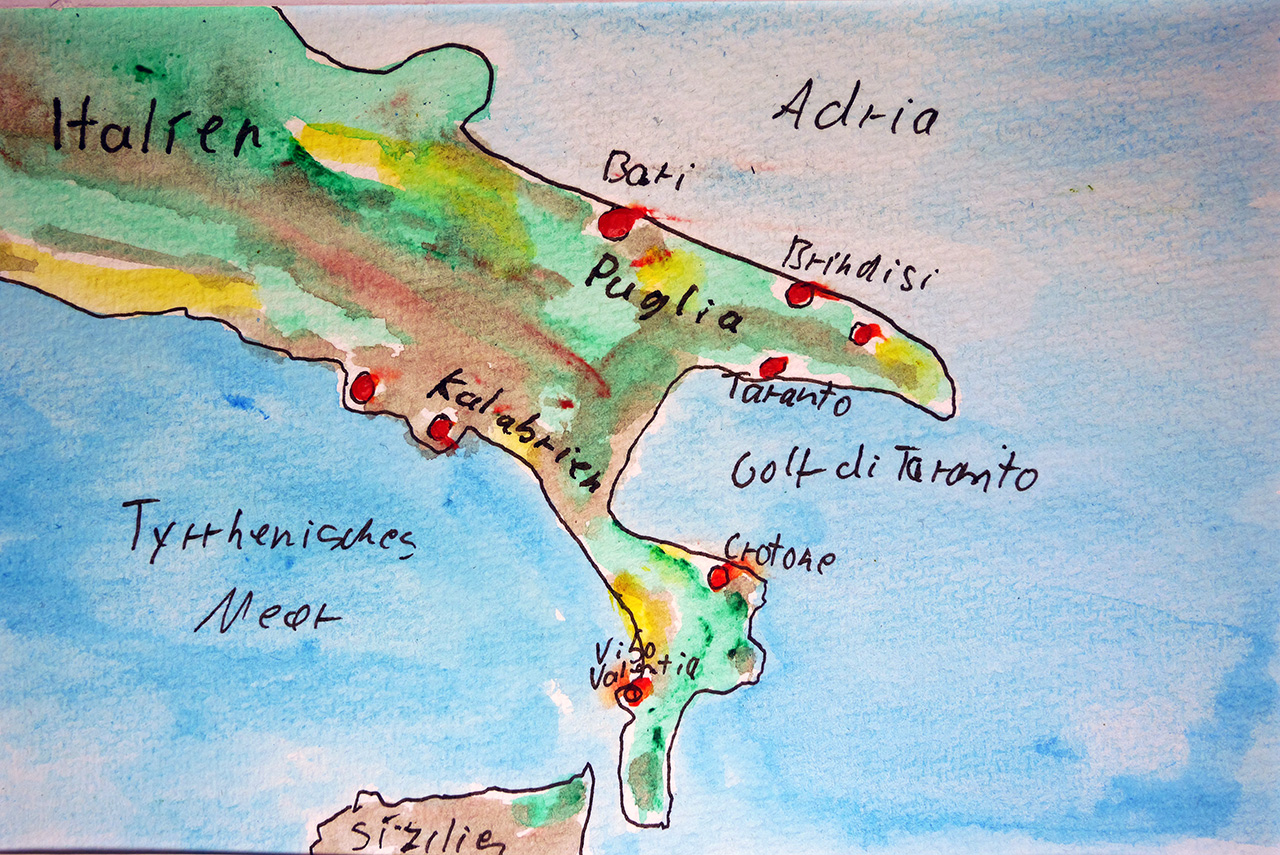 Adria
Italien
Bari
Brindisi
Puglia
Taranto
Kalabrien
Golf di Taranto
Tyrrhenisches
Meer
Crotone
Vibo
Valentia
Sizilien